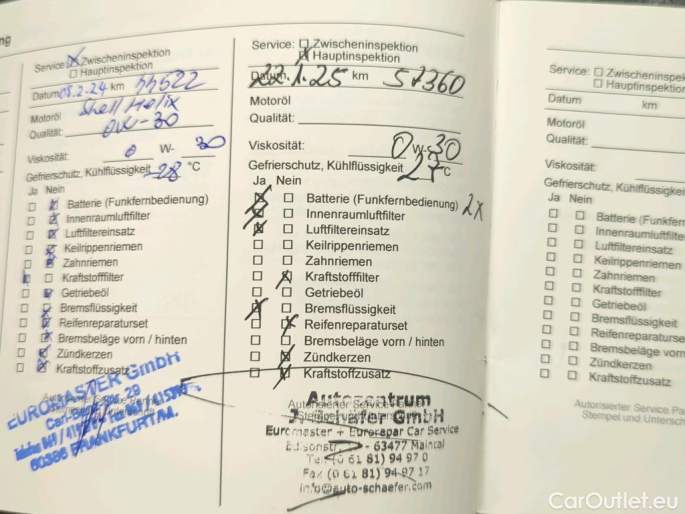 Service: Zwischeninspektion
Hauptinspektion
Datum 08.2.24 km 55522
Motoröl Shell Helix
Qualität: 0W-30
Viskosität: 0 W- 30
Gefrierschutz, Kühlflüssigkeit -28 °C
Ja Nein
Batterie (Funkfernbedienung)
Innenraumluftfilter
Luftfiltereinsatz
Keilrippenriemen
Zahnriemen
Kraftstofffilter
Getriebeöl
Bremsflüssigkeit
Reifenreparaturset
Bremsbeläge vorn / hinten
Zündkerzen
Kraftstoffzusatz
EUROMASTER GmbH
60386 FRANKFURT/M.
Service: Zwischeninspektion
Hauptinspektion
Datum 22.1.25 km 57360
Motoröl
Qualität:
Viskosität: 0 W-30
Gefrierschutz, Kühlflüssigkeit -27 °C
Ja Nein
Batterie (Funkfernbedienung) 2x
Innenraumluftfilter
Luftfiltereinsatz
Keilrippenriemen
Zahnriemen
Kraftstofffilter
Getriebeöl
Bremsflüssigkeit
Reifenreparaturset
Bremsbeläge vorn / hinten
Zündkerzen
Kraftstoffzusatz
Autozentrum
J. Schäfer GmbH
Euromaster + Eurorepar Car Service
63477 Maintal
Tel. (0 61 81) 94 97 0
Fax (0 61 81) 94 97 17
info@auto-schaefer.com
Service: Zwischeninspek
Hauptinspektion
Datum km
Motoröl
Qualität:
Viskosität:
Gefrierschutz, Kühlflüssigkei
Ja Nein
Batterie (Funkfern
Innenraumluftfilte
Luftfiltereinsatz
Keilrippenriemen
Zahnriemen
Kraftstofffilter
Getriebeöl
Bremsflüssigkeit
Reifenreparaturse
Bremsbeläge vorn
Zündkerzen
Kraftstoffzusatz
Autorisierter Service Pa
Stempel und Untersch
CarOutlet.eu